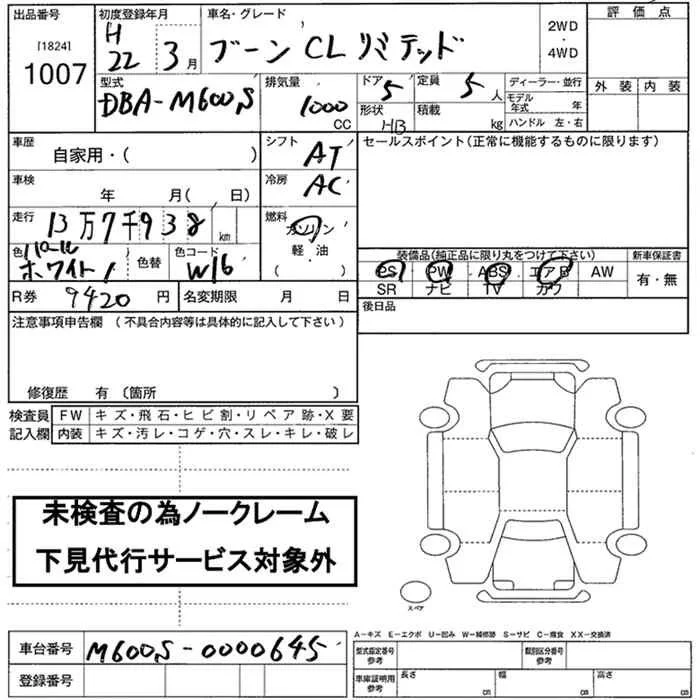 出品番号 初度登録年月 車名・グレード 評価点
[1824] H 2WD
1007 22 3月 ブーン CL リミテッド ・
4WD
型式 排気量 ドア 定員 ディーラー・並行 外装 内装
DBA-M600S 1000 5 5人 モデル年式 年
CC 形状 積載 ハンドル 左・右
HB kg
車歴 シフト セールスポイント(正常に機能するものに限ります)
自家用・( ) AT
車検 冷房
年 月( 日) AC
走行 13万7千938 km 燃料
ガソリン
色 パール 色替 色コード 軽油 装備品(純正品に限り丸をつけて下さい) 新車保証書
ホワイト1 W16 ( ) PS PW ABS エアB AW 有・無
SR ナビ TV カワ
R券 9420円 名変期限 月 日 後日品
注意事項申告欄 (不具合内容等は具体的に記入して下さい)
修復歴 有 〔箇所 〕
検査員 FW キズ・飛石・ヒビ割・リペア跡・X要
記入欄 内装 キズ・汚レ・コゲ・穴・スレ・キレ・破レ
未検査の為ノークレーム
下見代行サービス対象外
スペア
A-キズ E-エクボ U-凹み W-補修跡 S-サビ C-腐食 XX-交換済
車台番号 M600S-0000645 型式指定番号 参考 類別区分番号 参考
登録番号 車庫証明用 参考 長さ cm 幅 cm 高さ cm